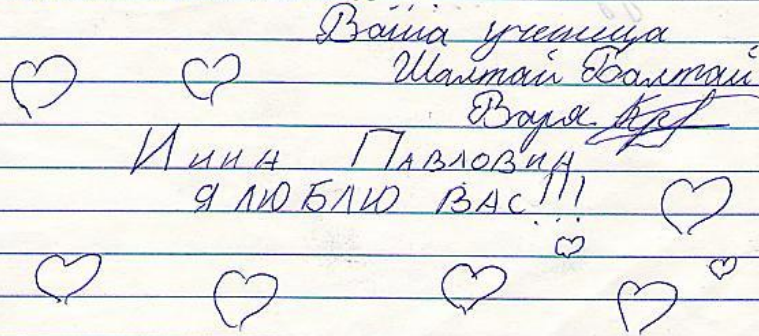 Ваша ученица
Шалтай Балтай
Варя
Инна Павловна
я люблю вас!!!